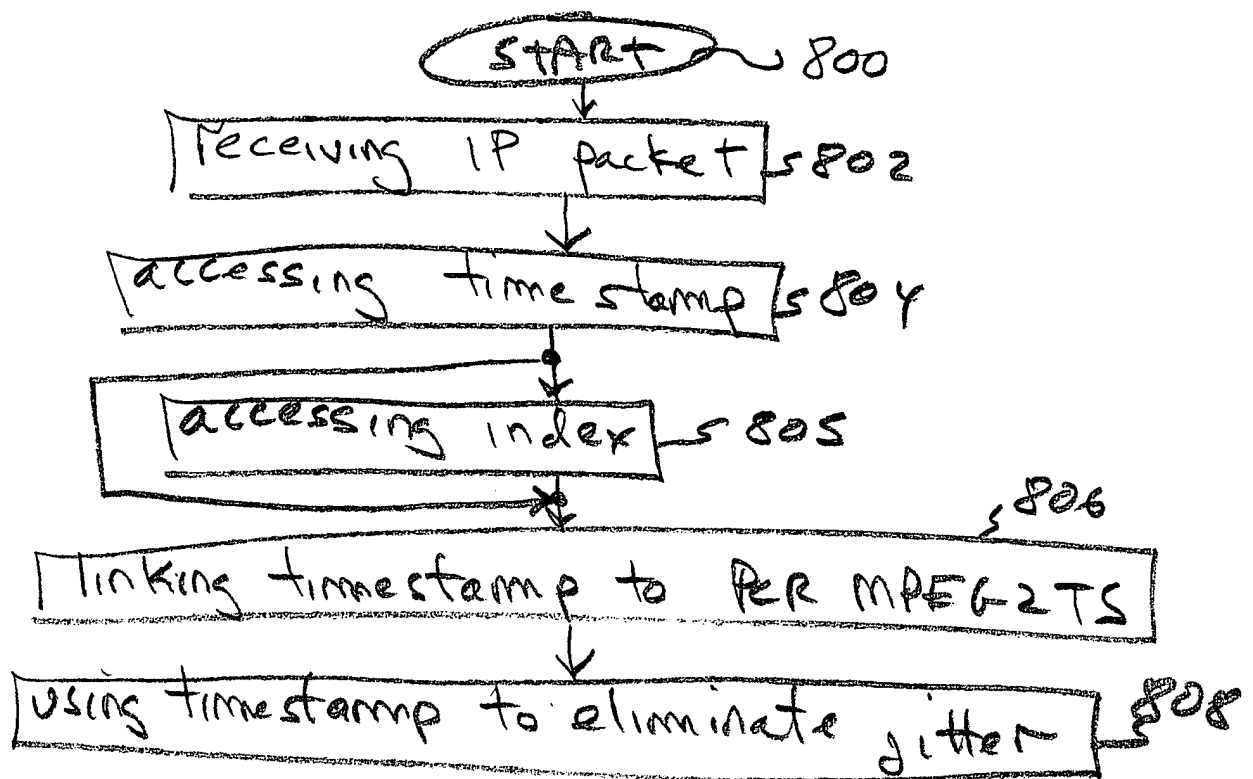 START 800
receiving IP packet 802
accessing timestamp 804
accessing index 805
806
linking timestamp to PCR MPEG-2 TS
using timestamp to eliminate jitter 808